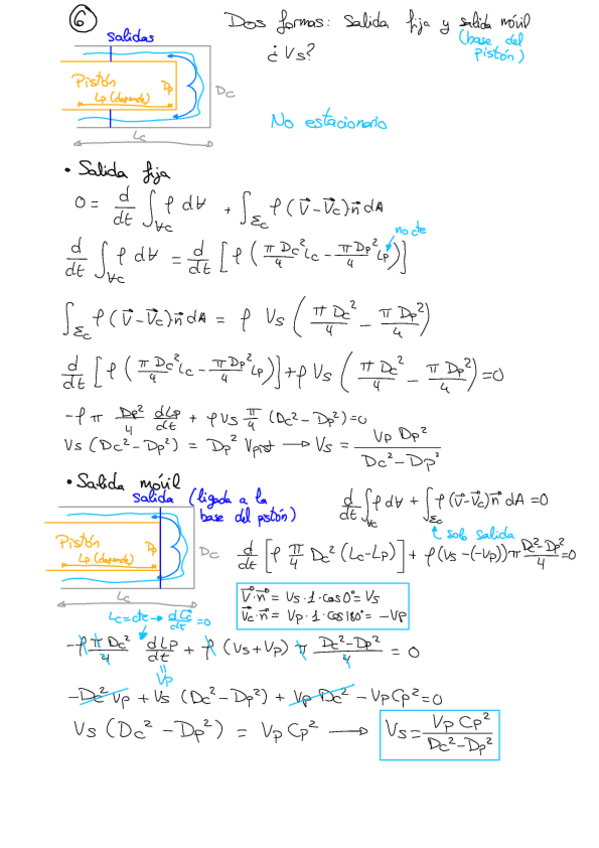 ⑥ Dos formas: Salida fija y salida móvil
(base del pistón)
¿Vs?
salidas
Pistón
Dp
Lp (depende)
Dc
Lc
No estacionario
• Salida fija
0 = d/dt ∫∀c ρ d∀ + ∫Σc ρ (V⃗ - V⃗c) n⃗ dA
no cte
d/dt ∫∀c ρ d∀ = d/dt [ρ (πDc²/4 Lc - πDp²/4 Lp)]
∫Σc ρ (V⃗ - V⃗c) n⃗ dA = ρ Vs (πDc²/4 - πDp²/4)
d/dt [ρ (πDc²/4 Lc - πDp²/4 Lp)] + ρ Vs (πDc²/4 - πDp²/4) = 0
-ρ π Dp²/4 dLp/dt + ρ Vs π/4 (Dc² - Dp²) = 0
Vs (Dc² - Dp²) = Dp² Vpist → Vs = Vp Dp² / (Dc² - Dp²)
• Salida móvil
salida (ligada a la
base del pistón)
Pistón
Dp
Lp (depende)
Dc
Lc
d/dt ∫∀c ρ d∀ + ∫Σc ρ (V⃗ - V⃗c) n⃗ dA = 0
sob salida
d/dt [ρ π/4 Dc² (Lc - Lp)] + ρ (Vs - (-Vp)) π (Dc² - Dp²)/4 = 0
V⃗·n⃗ = Vs · 1 · cos 0° = Vs
V⃗c·n⃗ = Vp · 1 · cos 180° = -Vp
Lc = cte → dLc/dt = 0
-ρ π Dc²/4 dLp/dt + ρ (Vs + Vp) π (Dc² - Dp²)/4 = 0
= Vp
-Dc² Vp + Vs (Dc² - Dp²) + Vp Dc² - Vp Cp² = 0
Vs (Dc² - Dp²) = Vp Cp² → Vs = Vp Cp² / (Dc² - Dp²)